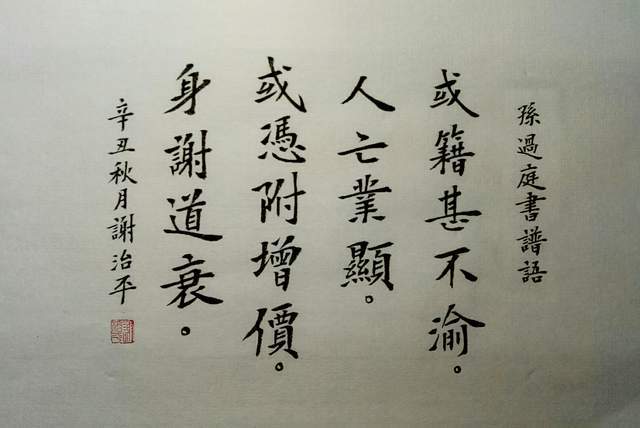 孫過庭書譜語
或籍甚不渝。
人亡業顯。
或憑附增價。
身謝道衰。
辛丑秋月謝治平